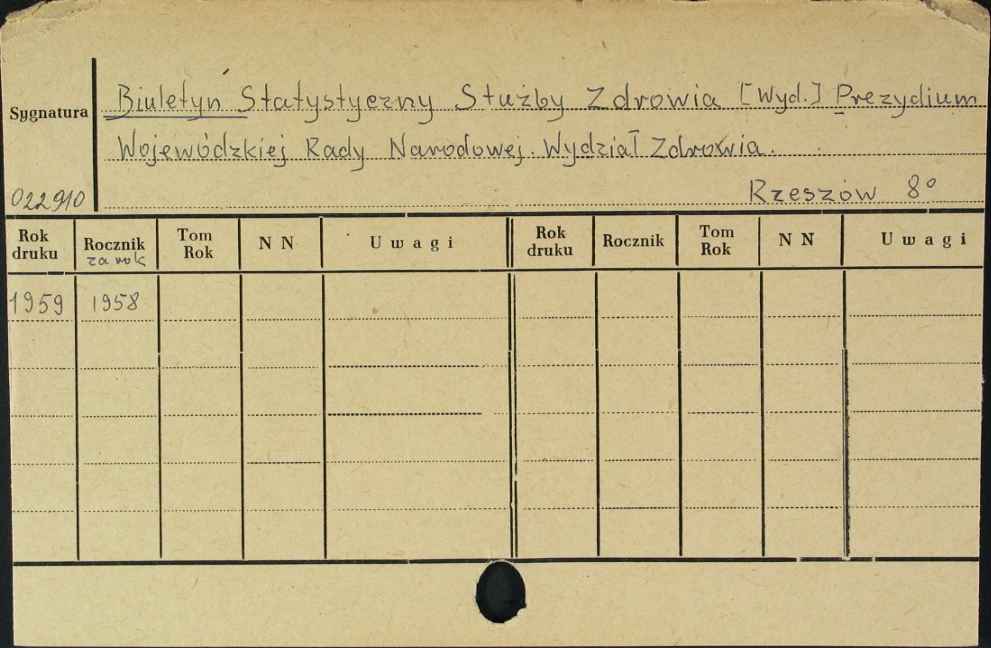 Sygnatura
Biuletyn Statystyczny Służby Zdrowia [Wyd.] Prezydium
Wojewódzkiej Rady Narodowej. Wydział Zdrowia.
022910
Rzeszów 8°
Rok druku Rocznik za rok Tom Rok N N Uwagi Rok druku Rocznik Tom Rok N N Uwagi
1959 1958